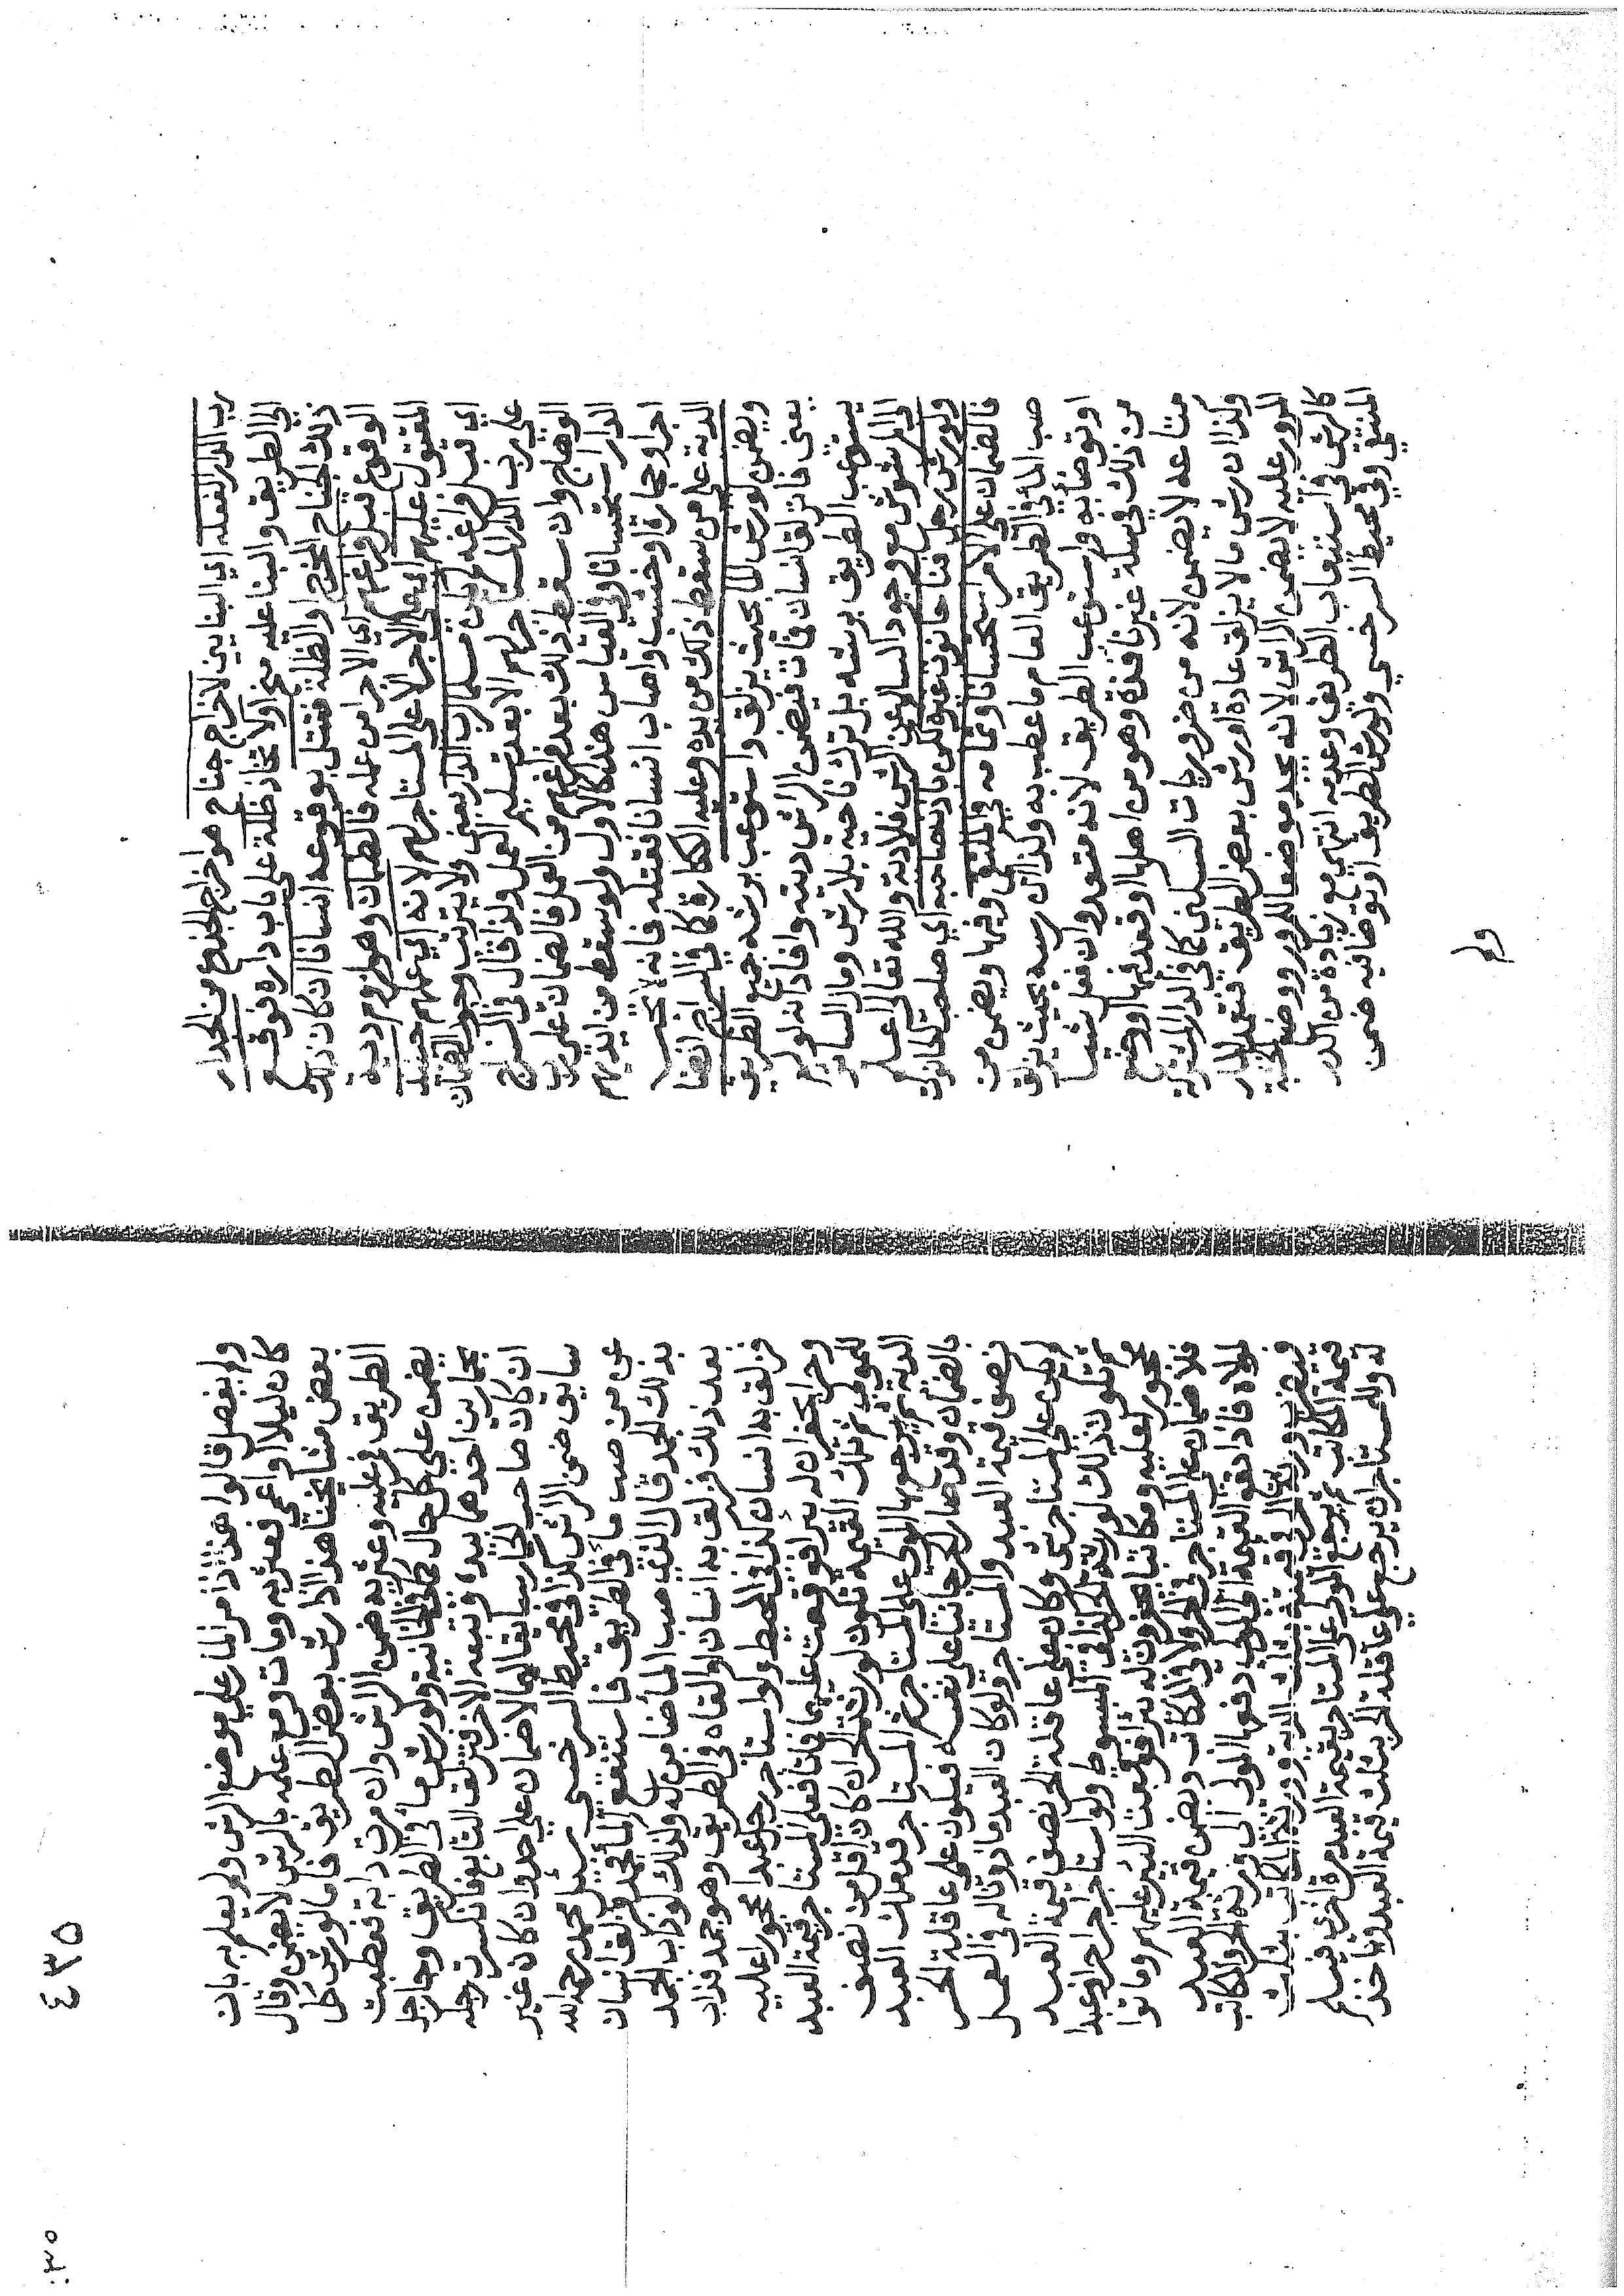 رب الدار الفعلة اي البنايين لاخراج جناح هو اخراج الجذوع من الجدار
الي الطريق والبنا عليه نحو ولا تخاذ ظلة على باب داره فوقع
ذلك الجناح المخرج او الظلة فقتل بوقوعه انسانا ان كان ذلك
الوقوع قبل فراغهم اي الاجرا من عمله فالضمان وهو لزوم دية
المقتول عليهم اي على الاجرا لا على المستاجر لهم لانه اي عملهم حينئذ
اي قبل فراغه لم يكن مسلما لرب الدار يعني ولا يترتب وجوب الضمان
على رب الدار المستاجر لهم الا بعد تسليم العمل ولذا قال في السراج
الوهاج وان سقط ذلك بعد فراغهم من العمل فالضمان على رب
الدار استحسانا وفي القياس هذا كالاول ولو سقط من ايديهم
اجر او حجارة او خشب واصاب انسانا فقتله فانه يجب
الدية على من سقط ذلك من يده وعليه الكفارة كما في السراج ايضا
ويضمن لو رش الما بحيث يزلق واستوعب برشه جميع الطريق
يعني فانزلق انسان فمات فيضمن الراش ديته وافاد انه لو لم
يستوعب الطريق برشه بل ترك ناحية بلا رش ومال الساير
الى المرشوش مع وجود السالم عن الرش فلا دية والله تعالى اعلم
ولو رش رجل فنا حانوت غيره لكن باذن صاحبه اي صاحب الحانوت
فالضمان على الامر استحسانا وتمامه في الملتقى وفيها ويضمن من
صب الما في الطريق العام ما عطب به وكذا ان رسه بحيث يزلق
او توضا به واستوعب الطريق لانه متعد وان فعل شيئا
من ذلك في سكة غير نافذة وهو من اهلها او قعد فيها او وضع
متاعه لا يضمن لانه من ضروريات السكنى كما في الدار المشتركة
وكذا ان رش ما لا يزلق عادة او رش بعض الطريق فتعمد المار
المرور عليه لا يضمن الراش لانه يجد موضعا للمرور ووضع الخشبة
كالرش في استيعاب الطريق وعدمه انتهى مع زيادة من الدر
المنتقي وفي محيط السرخسي ولو رش الطريق او توضا فيه ضمن
ولم
٤٣٥
ولم يفصل قالوا هذا اذا مر المار على موضع الرش ولم يعلم به بان
كان ليلا او اعمى فعثر به ومات ومع علمه بالرش لا يضمن وقال
بعض مشايخنا هذا اذا رش بعض الطريق فاما لو رش كل
الطريق فمر عليه وعثر به ضمن الراش وان مرت دابة فعطبت
يضمن على كل حال كما في الخانية ولو رش ما في الطريق وجا رجل
بحمارين احدهما بيده وتبعه الاخر فتزلق التابع فانكسرت رجله
ان كان صاحب الحمار سايقا لهما لا ضمان على احد وان كان غير
سايق ضمن الراش كذا في محيط السرخسي سئل محمد رحمه الله
عن من صب ما في الطريق فاستنقع الما فجمد فزلق انسان
بذلك الجمد قال الذي صب الما ضامن له وكذلك لو ذاب الجمد
بعد ذلك فزلق به انسان او القاه في الطريق وهو جمد فذاب
فزلق به انسان كذا في المحيط ولو استاجر رجل عبدا محجورا عليه
وحرا يحفران له بئرا فوقعت عليهما فماتا فعلى المستاجر قيمة العبد
للمولى ثم تلك القيمة تكون لورثة الحر ان كان اقل من نصف
الدية ثم يرجع بها المولى على المستاجر ثم المستاجر قد ملك العبد
بالضمان وقد صار الحر جانيا على نفسه فيكون على عاقلة الحر
نصف قيمة العبد والمستاجر ولو كان العبد ماذونا له في العمل
لم يكن على المستاجر شي وكان على عاقلة الحر نصف قيمة العبد
ثم تكون ذلك لورثة الحر كذا في المبسوط ولو استاجر اجرا حرا وعبدا
محجورا عليه ومكاتبا يحفرون له بئرا فوقعت البير عليهم وماتوا
فلا ضمان على المستاجر في الحر ولا في المكاتب ويضمن قيمة العبد
لمولاه فاذا دفع القيمة الى المولى دفعها المولى الى ورثة الحر والمكاتب
فيضرب ورثة الحر في قيمته بثلث الدية وورثة المكاتب بثلث
قيمة المكاتب ثم يرجع المولى على المستاجر بقيمة العبد مرة اخرى فيسلم
له وللمستاجر ان يرجع على عاقلة الحر بثلث قيمة العبد وياخذ